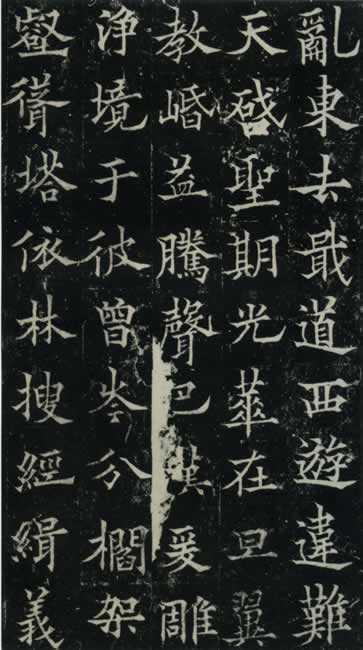 亂東去戢道西遊違難
天啓聖期光華在旦翼
教崏益騰聲巴漢爰雕
浄境于彼曾岑分櫩架
壑塔依林搜經緝義